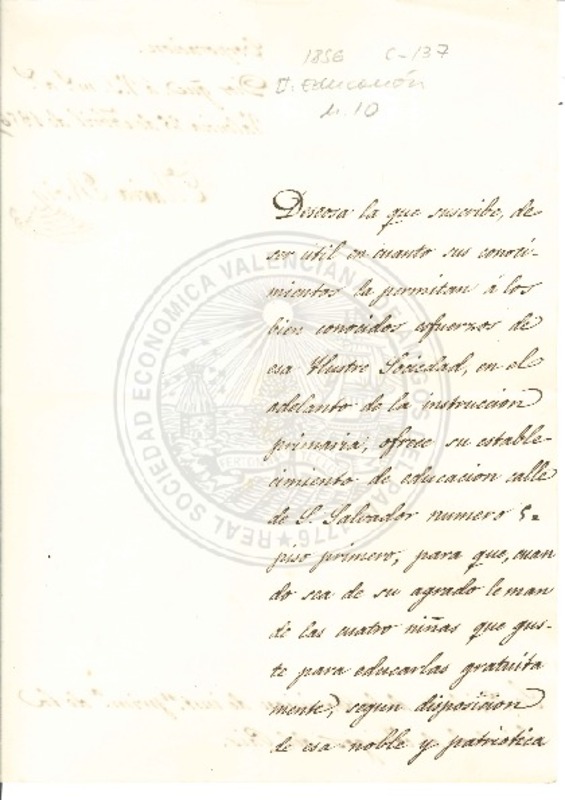 1856 C-137
V. Educación
n. 10
Deseosa la que suscribe, de
ser útil en cuanto sus conoci-
mientos la permitan á los
bien conocidos esfuerzos de
esa Ilustre Sociedad, en el
adelanto de la instruccion
primaria, ofrece su estable-
cimiento de educacion calle
de S. Salvador numero 5.
piso primero, para que, cuan
do sea de su agrado le man
de las cuatro niñas que gus-
te para educarlas gratuita
mente, segun disposicion
de esa noble y patriotica
REAL SOCIEDAD ECONOMICA VALENCIANA DE AMIGOS DEL PAIS
1776